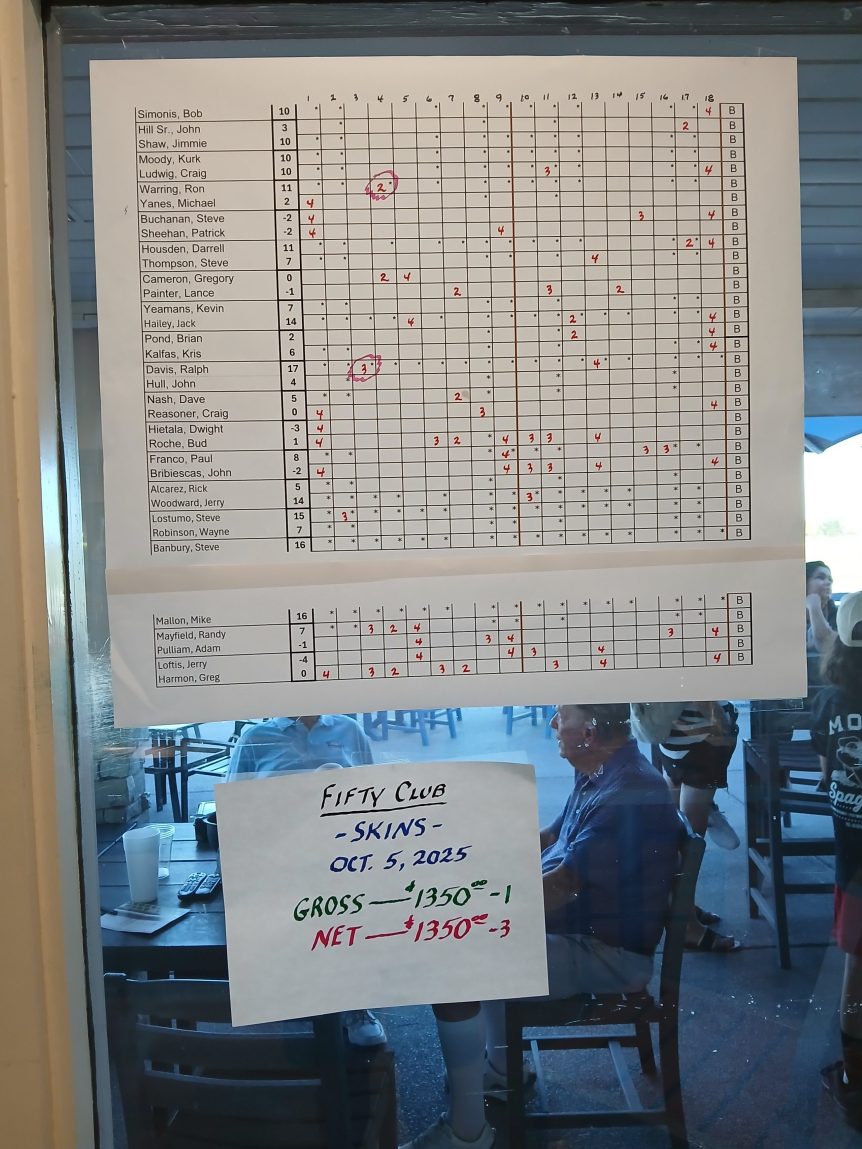 1 2 3 4 5 6 7 8 9 10 11 12 13 14 15 16 17 18
Simonis, Bob 10 4 B
Hill Sr., John 3 2 B
Shaw, Jimmie 10 B
Moody, Kurk 10 B
Ludwig, Craig 10 3 4 B
Warring, Ron 11 2 B
Yanes, Michael 2 4 B
Buchanan, Steve -2 4 3 4 B
Sheehan, Patrick -2 4 4 B
Housden, Darrell 11 2 4 B
Thompson, Steve 7 4 B
Cameron, Gregory 0 2 4 B
Painter, Lance -1 2 3 2 B
Yeamans, Kevin 7 B
Hailey, Jack 14 4 2 4 B
Pond, Brian 2 2 4 B
Kalfas, Kris 6 4 B
Davis, Ralph 17 3 4 B
Hull, John 4 B
Nash, Dave 5 2 B
Reasoner, Craig 0 4 3 4 B
Hietala, Dwight -3 4 B
Roche, Bud 1 4 3 2 4 3 3 4 B
Franco, Paul 8 4 3 3 B
Bribiescas, John -2 4 4 3 3 4 4 B
Alcarez, Rick 5 B
Woodward, Jerry 14 3 B
Lostumo, Steve 15 3 B
Robinson, Wayne 7 B
Banbury, Steve 16 B
Mallon, Mike 16 B
Mayfield, Randy 7 3 2 4 B
Pulliam, Adam -1 4 3 4 4 3 4 B
Loftis, Jerry -4 4 4 3 4 B
Harmon, Greg 0 4 3 2 3 2 3 4 4 B
FIFTY CLUB
- SKINS -
OCT. 5, 2025
GROSS — $1350.00 - 1
NET — $1350.00 - 3
MO
Spag